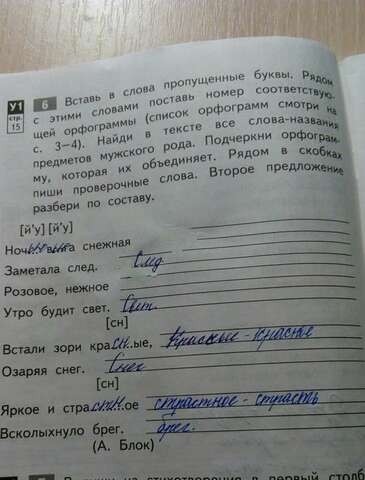 У1
стр.
15
6 Вставь в слова пропущенные буквы. Рядом
с этими словами поставь номер соответствую-
щей орфограммы (список орфограмм смотри на
с. 3—4). Найди в тексте все слова-названия
предметов мужского рода. Подчеркни орфограм-
му, которая их объединяет. Рядом в скобках
пиши проверочные слова. Второе предложение
разбери по составу.
[й'у] [й'у]
снежная
Заметала след. След
Розовое, нежное
Утро будит свет. Свет.
[сн]
Встали зори кра сн ..ые, Красные - красне
Озаряя снег. Снег
[сн]
Яркое и стра стн ..ое страстное - страсть
Всколыхнуло брег. брег.
(А. Блок)
в первый столб